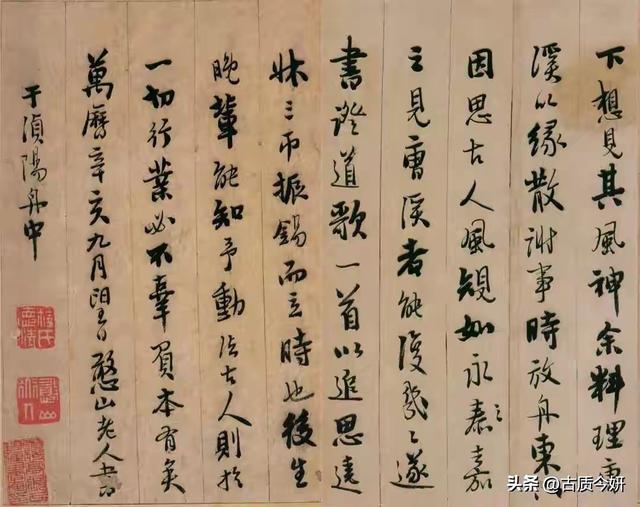 下想見其風神余料理
溪以緣散謝事時放舟東
因思古人風規如永泰嘉
之見曹溪者能復幾〻遂
書證道歌一首以追思遶
牀三帀振錫而立時也後生
晚輩能知予動法古人則於
一切行業必不辜負本有矣
萬曆辛亥九月望日憨山老人書
于湞陽舟中
头条 @古质今妍